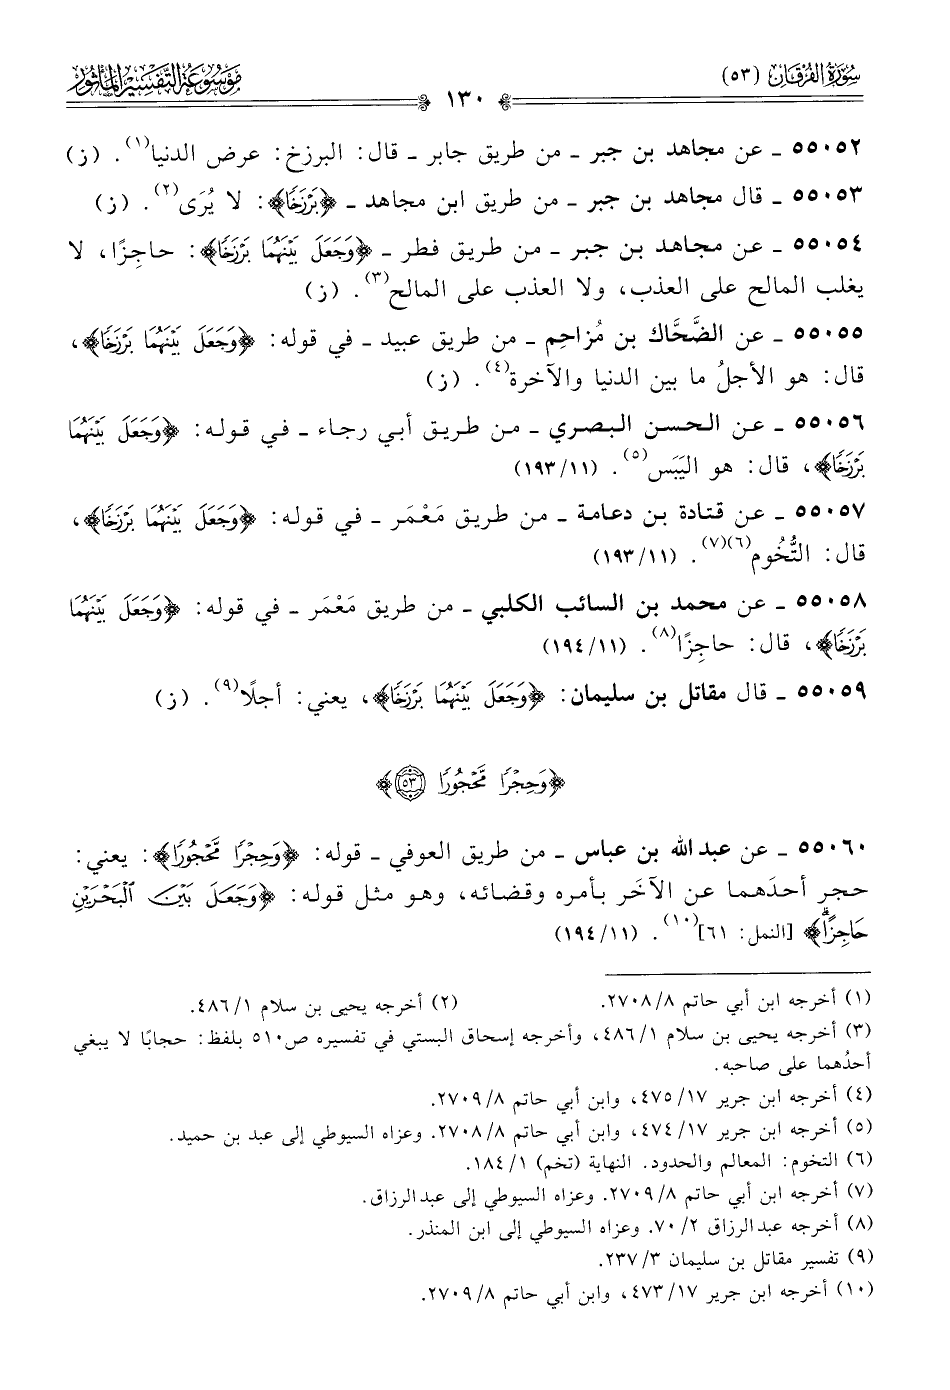 سُورَةُ الفُرْقَان (٥٣)
١٣٠
مَوْسُوعَة التَّفْسِير المَأثُور
٥٥٠٥٢ ـ عن مجاهد بن جبر ـ من طريق جابر ـ قال: البرزخ: عرض الدنيا(١). (ز)
٥٥٠٥٣ ـ قال مجاهد بن جبر ـ من طريق ابن مجاهد ـ ﴿بَرْزَخًا﴾: لا يُرَى(٢). (ز)
٥٥٠٥٤ ـ عن مجاهد بن جبر ـ من طريق فطر ـ ﴿وَجَعَلَ بَيْنَهُمَا بَرْزَخًا﴾: حاجِزًا، لا
يغلب المالح على العذب، ولا العذب على المالح(٣). (ز)
٥٥٠٥٥ ـ عن الضَّحَّاك بن مُزاحِم ـ من طريق عبيد ـ في قوله: ﴿وَجَعَلَ بَيْنَهُمَا بَرْزَخًا﴾،
قال: هو الأجلُ ما بين الدنيا والآخرة(٤). (ز)
٥٥٠٥٦ ـ عن الحسن البصري ـ من طريق أبي رجاء ـ في قوله: ﴿وَجَعَلَ بَيْنَهُمَا
بَرْزَخًا﴾، قال: هو اليَبَس(٥). (١٩٣/١١)
٥٥٠٥٧ ـ عن قتادة بن دعامة ـ من طريق مَعْمَر ـ في قوله: ﴿وَجَعَلَ بَيْنَهُمَا بَرْزَخًا﴾،
قال: التُّخُوم(٦)(٧). (١٩٣/١١)
٥٥٠٥٨ ـ عن محمد بن السائب الكلبي ـ من طريق مَعْمَر ـ في قوله: ﴿وَجَعَلَ بَيْنَهُمَا
بَرْزَخًا﴾، قال: حاجِزًا(٨). (١٩٤/١١)
٥٥٠٥٩ ـ قال مقاتل بن سليمان: ﴿وَجَعَلَ بَيْنَهُمَا بَرْزَخًا﴾، يعني: أجلًا(٩). (ز)
﴿وَحِجْرًا مَّحْجُورًا ٥٣﴾
٥٥٠٦٠ ـ عن عبد الله بن عباس ـ من طريق العوفي ـ قوله: ﴿وَحِجْرًا مَّحْجُورًا﴾: يعني:
حجر أحدَهما عن الآخَر بأمره وقضائه، وهو مثل قوله: ﴿وَجَعَلَ بَيْنَ ٱلْبَحْرَيْنِ
حَاجِزًاۗ﴾ [النمل: ٦١](١٠). (١٩٤/١١)
(١) أخرجه ابن أبي حاتم ٢٧٠٨/٨. (٢) أخرجه يحيى بن سلام ٤٨٦/١.
(٣) أخرجه يحيى بن سلام ٤٨٦/١، وأخرجه إسحاق البستي في تفسيره ص٥١٠ بلفظ: حجابًا لا يبغي
أحدُهما على صاحبه.
(٤) أخرجه ابن جرير ٤٧٥/١٧، وابن أبي حاتم ٢٧٠٩/٨.
(٥) أخرجه ابن جرير ٤٧٤/١٧، وابن أبي حاتم ٢٧٠٨/٨. وعزاه السيوطي إلى عبد بن حميد.
(٦) التخوم: المعالم والحدود. النهاية (تخم) ١٨٤/١.
(٧) أخرجه ابن أبي حاتم ٢٧٠٩/٨. وعزاه السيوطي إلى عبدالرزاق.
(٨) أخرجه عبدالرزاق ٧٠/٢. وعزاه السيوطي إلى ابن المنذر.
(٩) تفسير مقاتل بن سليمان ٢٣٧/٣.
(١٠) أخرجه ابن جرير ٤٧٣/١٧، وابن أبي حاتم ٢٧٠٩/٨.